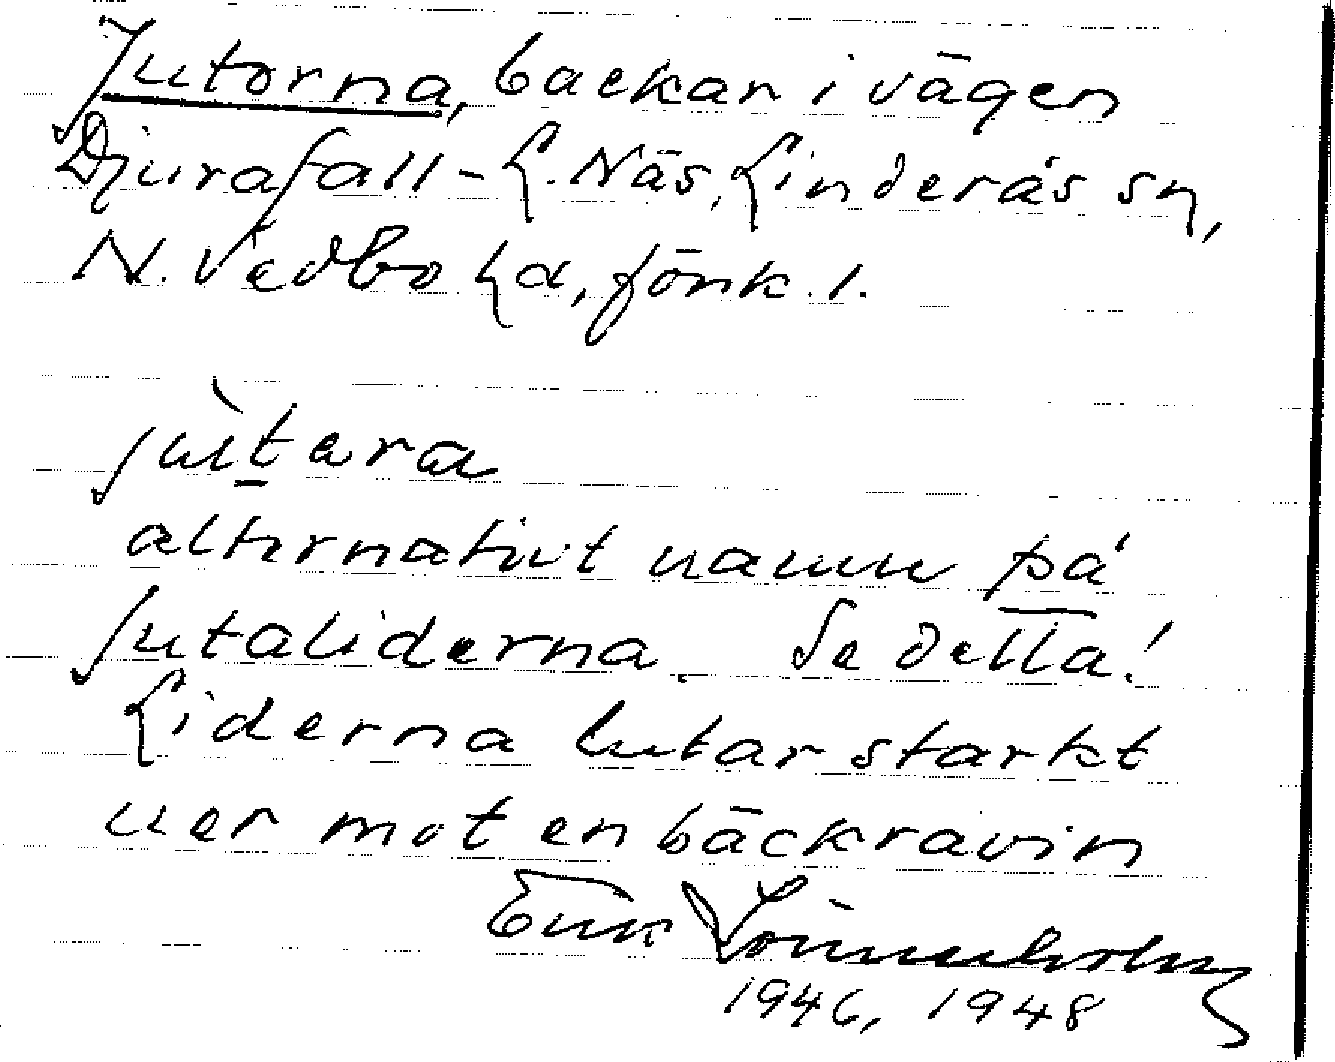 Jutorna, backar i vägen
Djurafall - L. Näs, Linderås sn,
N. Vedbo hd, Jönk. l.
jùtara
alternativt namn på
Jutaliderna. Se detta!
Liderna lutar starkt
ner mot en bäckravin
Erik Lönnerholm
1946, 1948